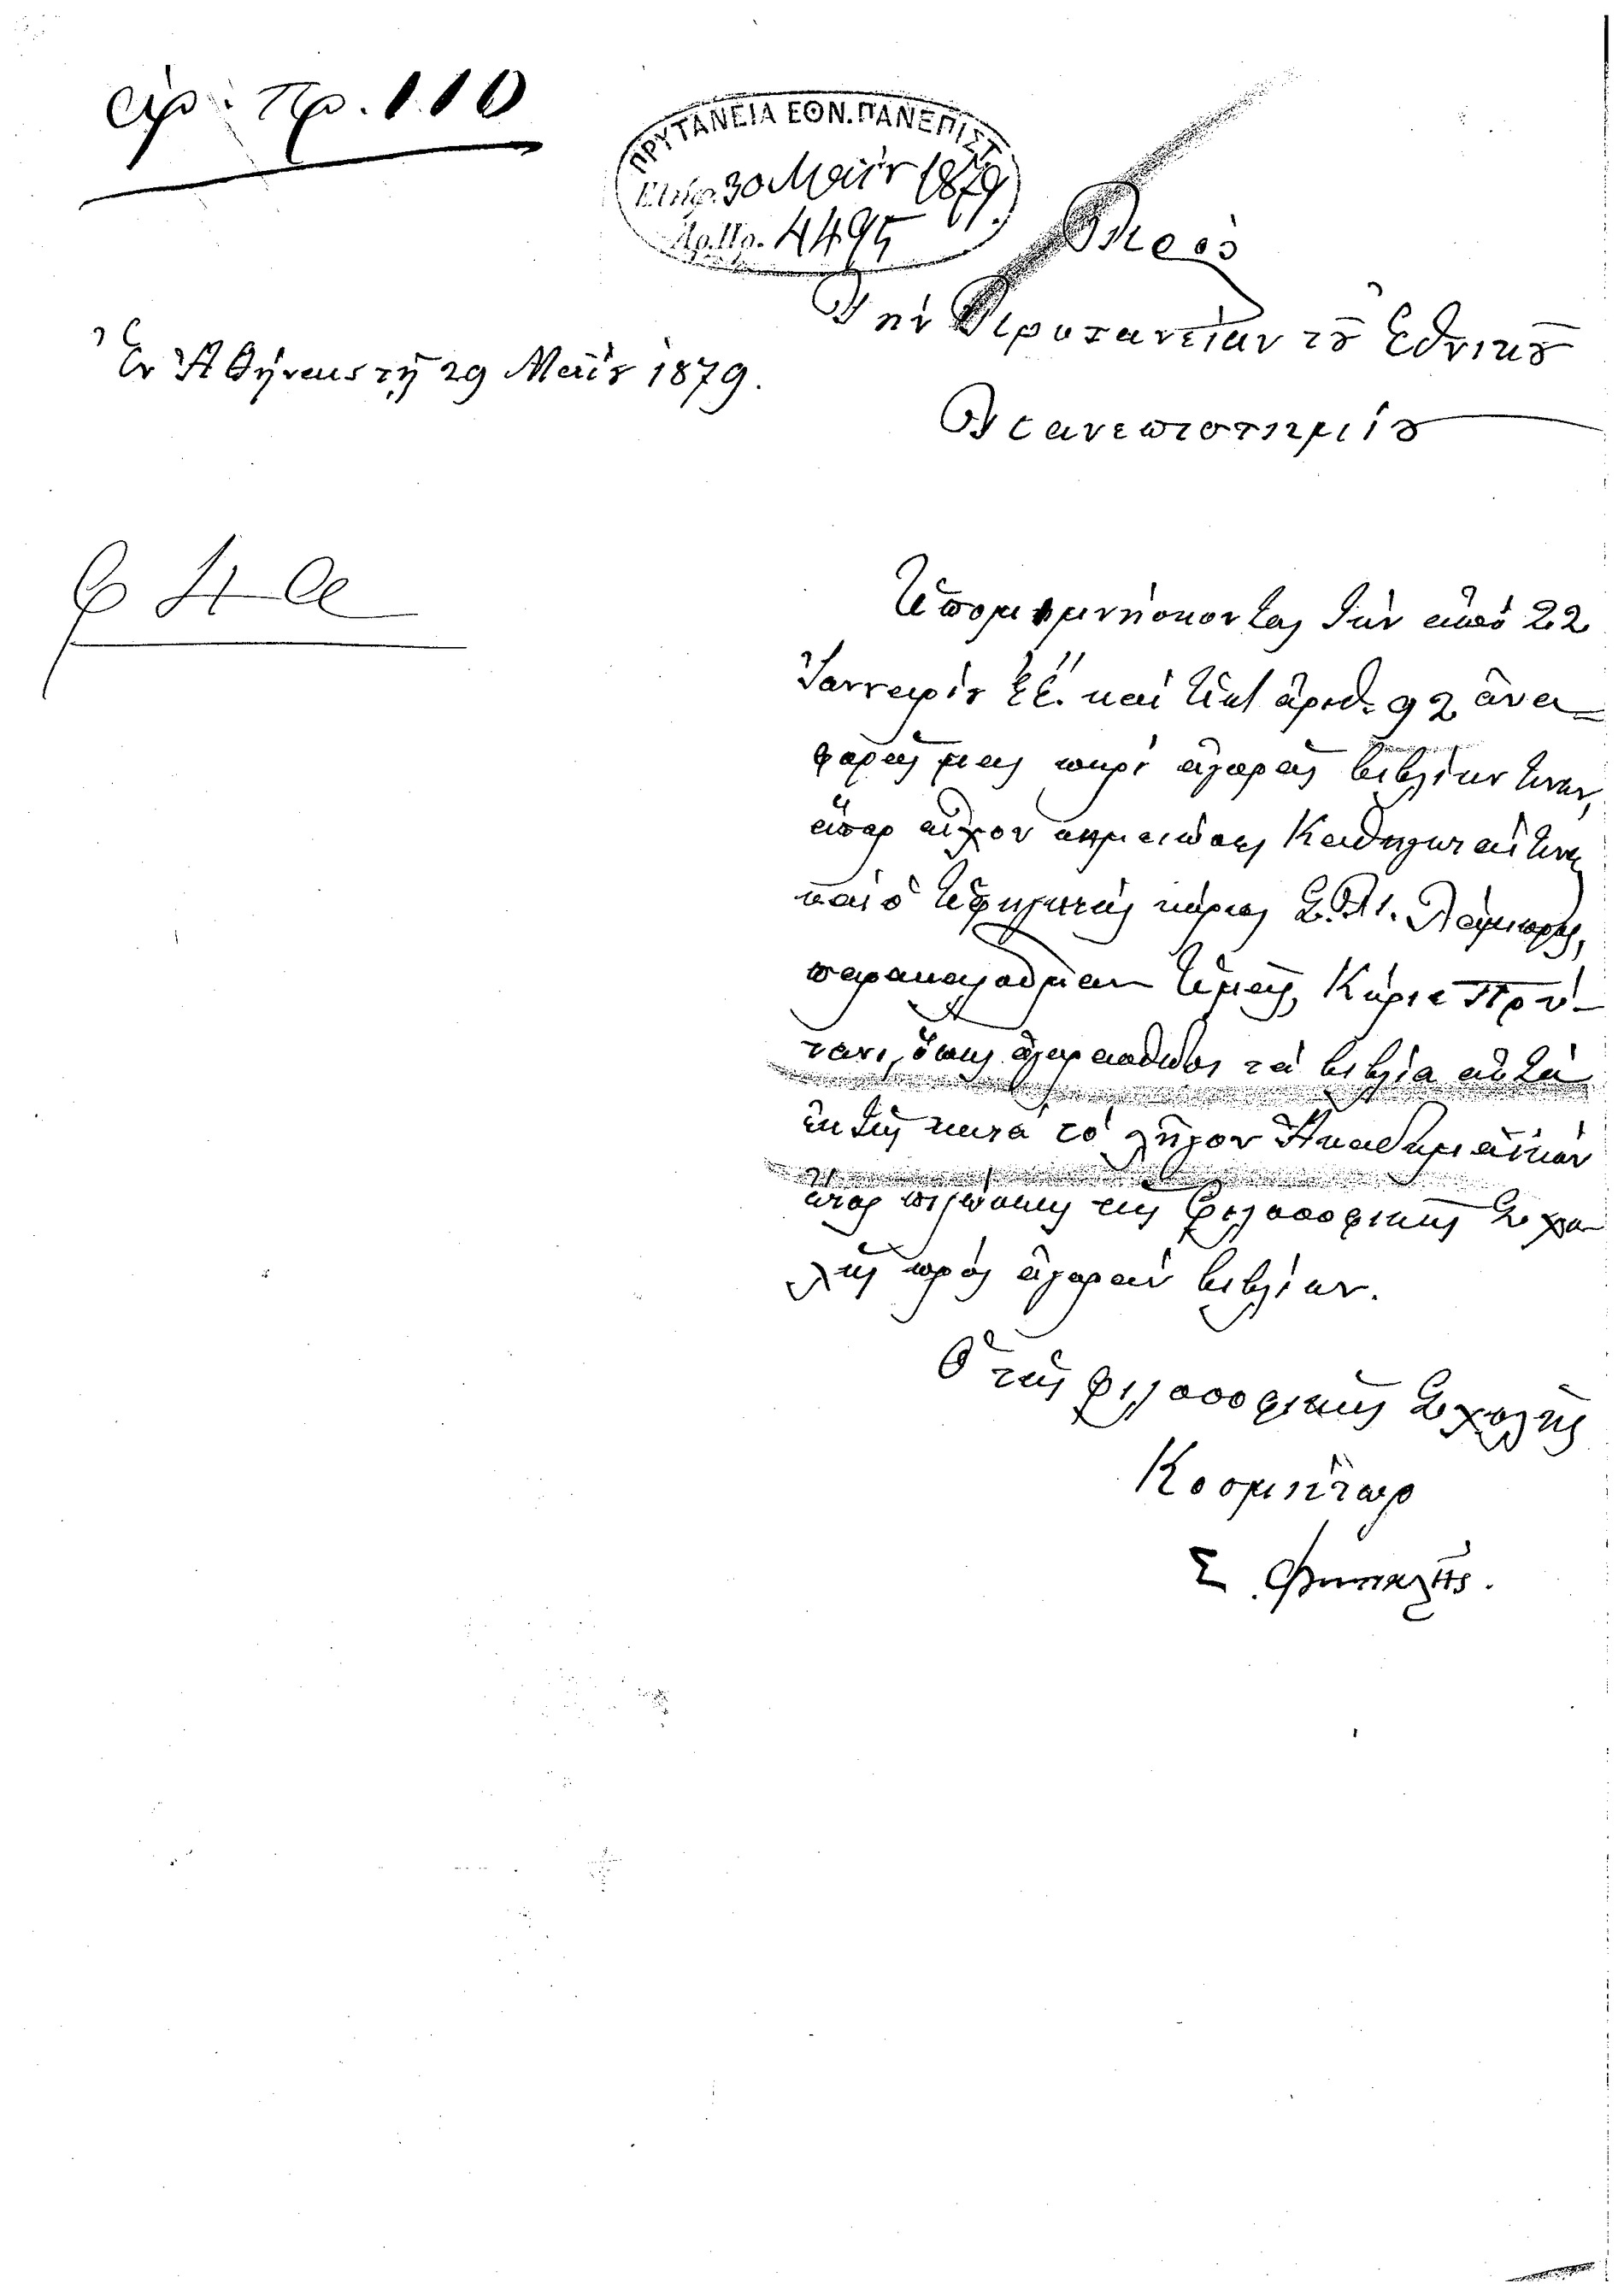 ἀρ: πρ. 110
ΠΡΥΤΑΝΕΙΑ ΕΘΝ. ΠΑΝΕΠΙΣΤ.
Ἐλήφ. 30 Μαΐου 1879
Ἀρ. Πρ. 4495
Πρὸς
Τὴν Πρυτανείαν τοῦ Ἐθνικοῦ
Πανεπιστημίου
Ἐν Ἀθήναις τῇ 29 Μαΐου 1879.
Ὑπομιμνήσκοντες τὴν ἀπὸ 22
Ἰανουαρίου ἐ.ἔ. καὶ ὑπ' ἀριθ. 92 ἀνα-
φοράν μας περὶ ἀγορᾶς βιβλίων τινων,
ἅπερ εἶχον σημειώσει Καθηγηταί τινες
καὶ ὁ ὑφηγητὴς κύριος Σ. Π. Λάμπρος,
παρακαλοῦμεν ὑμᾶς, Κύριε Πρύ-
τανι, ὅπως ἀγορασθῶσι τὰ βιβλία αὐτὰ
ἐκ τῆς κατὰ τὸ λῆγον Ἀκαδημαϊκὸν
ἔτος πιστώσεως τῆς Φιλοσοφικῆς Σχο-
λῆς πρὸς ἀγορὰν βιβλίων.
Ὁ τῆς Φιλοσοφικῆς Σχολῆς
Κοσμήτωρ
Σ. Φιντικλῆς.